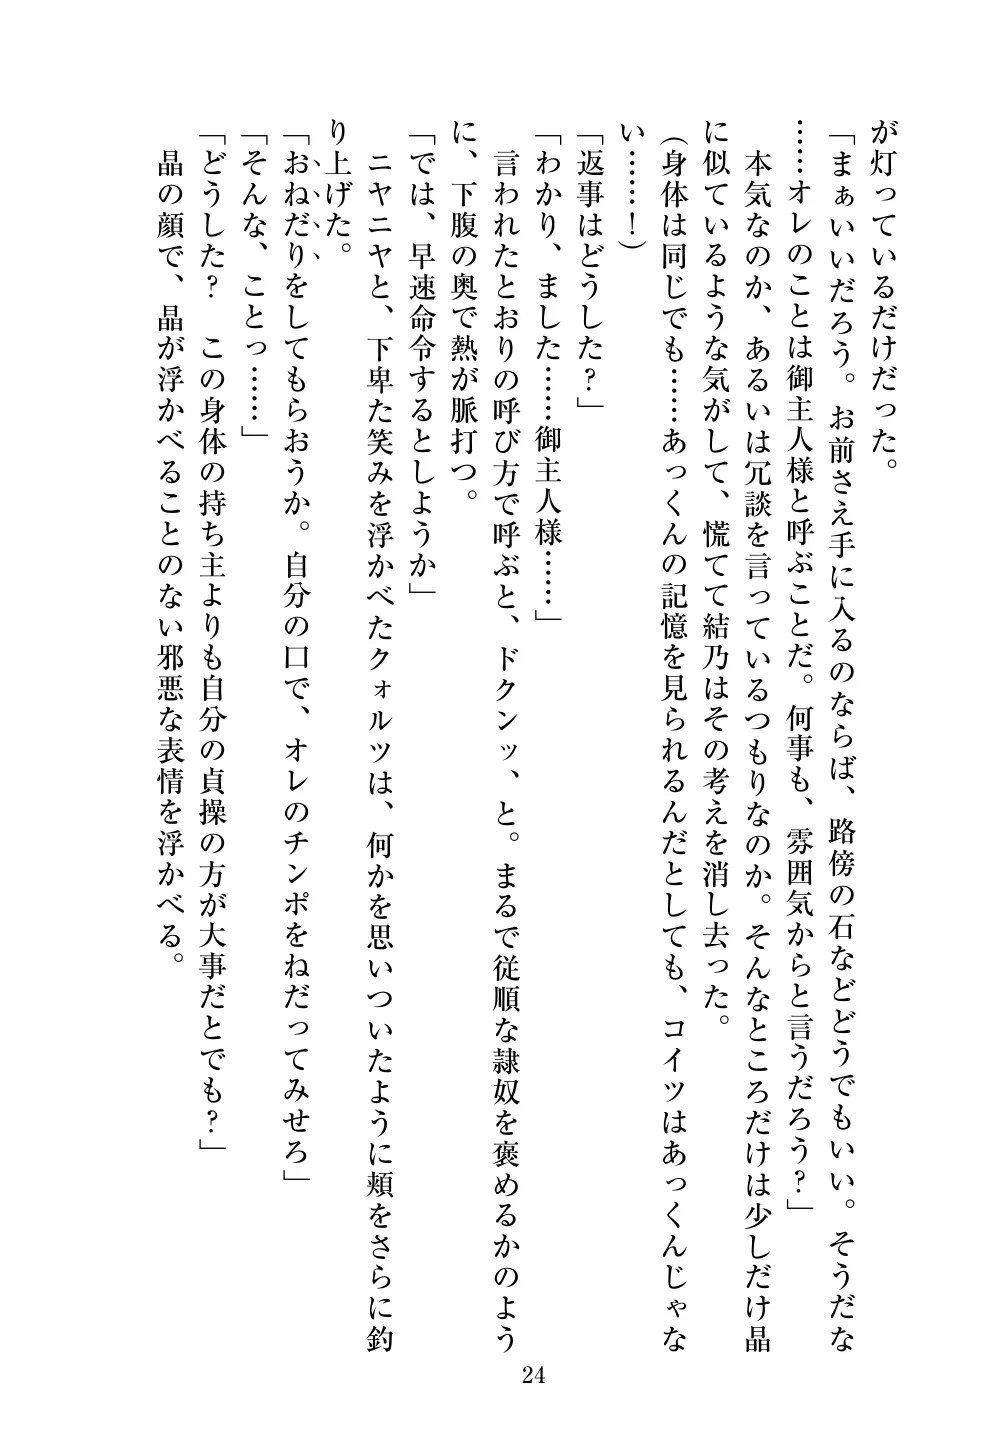 が灯っているだけだった。
「まぁいいだろう。お前さえ手に入るのならば、路傍の石などどうでもいい。そうだな
……オレのことは御主人様と呼ぶことだ。何事も、雰囲気からと言うだろう？」
本気なのか、あるいは冗談を言っているつもりなのか。そんなところだけは少しだけ晶
に似ているような気がして、慌てて結乃はその考えを消し去った。
（身体は同じでも……あっくんの記憶を見られるんだとしても、コイツはあっくんじゃな
い……！）
「返事はどうした？」
「わかり、ました……御主人様……」
言われたとおりの呼び方で呼ぶと、ドクンッ、と。まるで従順な隷奴を褒めるかのよう
に、下腹の奥で熱が脈打つ。
「では、早速命令するとしようか」
ニヤニヤと、下卑た笑みを浮かべたクォルツは、何かを思いついたように頬をさらに釣
り上げた。
「おねだりをしてもらおうか。自分の口で、オレのチンポをねだってみせろ」
「そんな、ことっ……」
「どうした？　この身体の持ち主よりも自分の貞操の方が大事だとでも？」
晶の顔で、晶が浮かべることのない邪悪な表情を浮かべる。
24